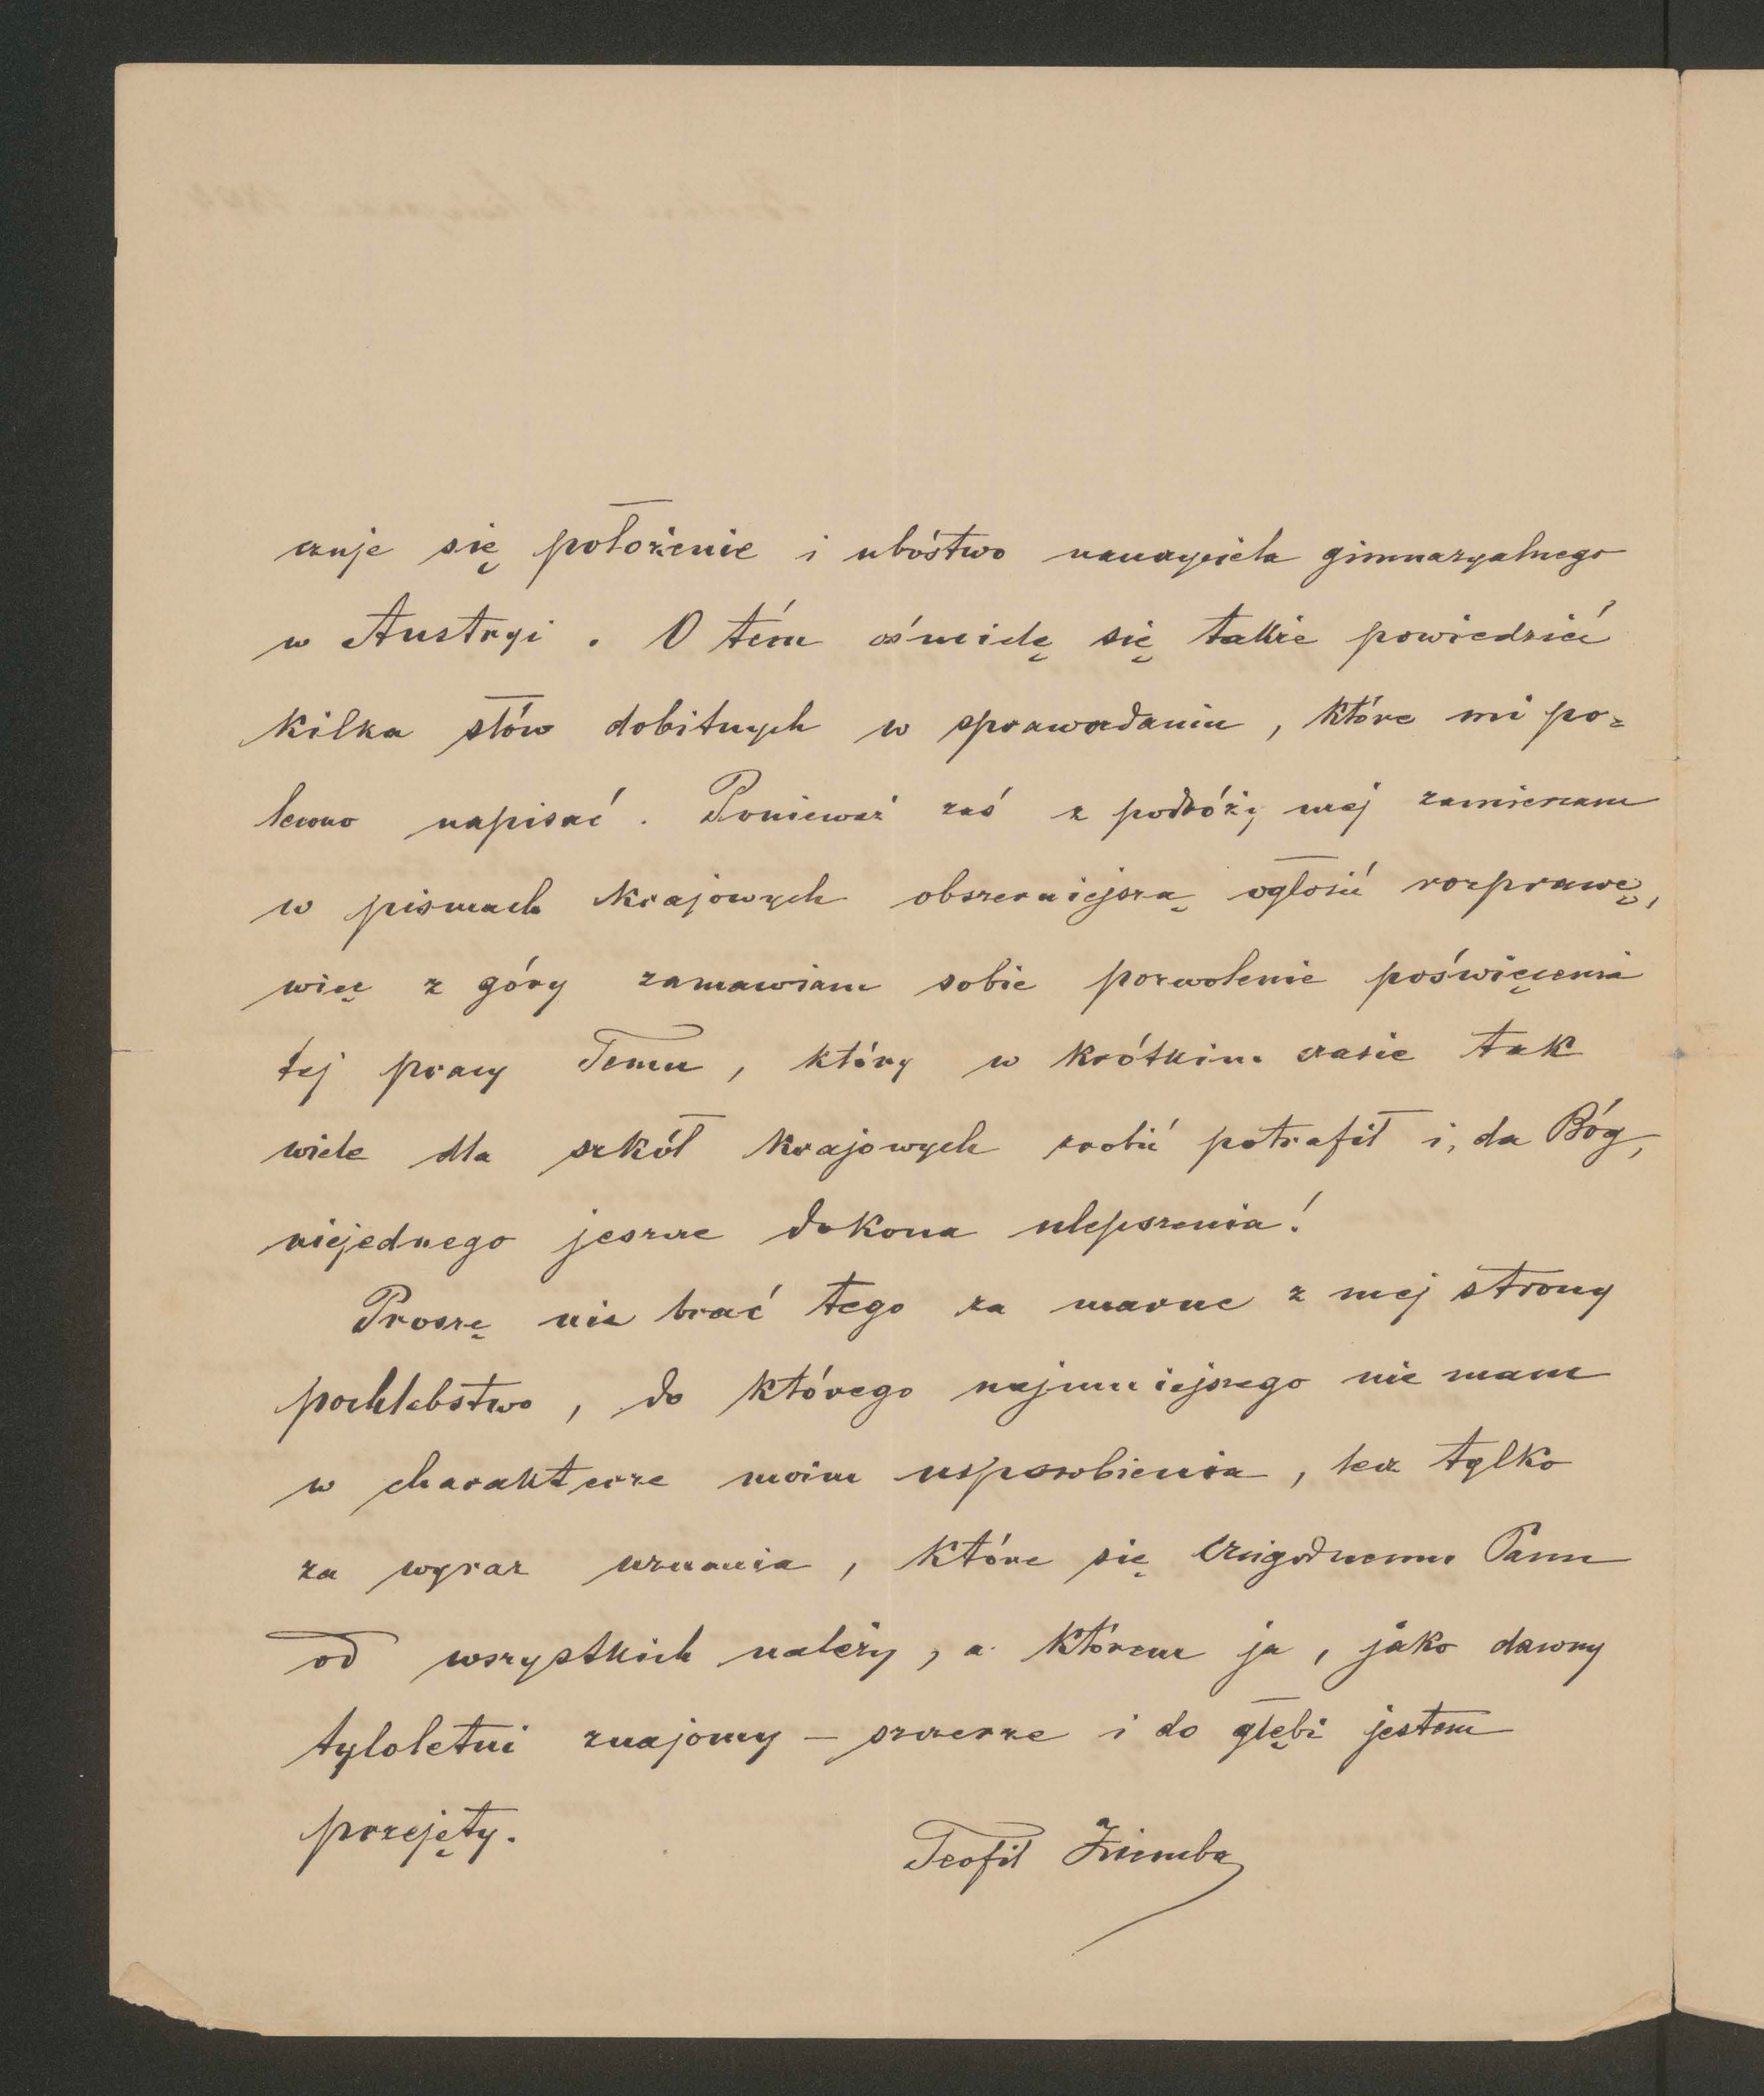 czuje się położenie i ubóstwo nauczyciela gimnazyalnego
w Austryi. O tém ośmielę się także powiedzieć
kilka słów dobitnych w sprawozdaniu, które mi po-
lecono napisać. Ponieważ zaś z podróży mej zamierzam
w pismach krajowych obszerniejszą ogłosić rozprawę,
więc z góry zamawiam sobie pozwolenie poświęcenia
tej pracy Temu, który w krótkim czasie tak
wiele dla szkół krajowych zrobić potrafił i, da Bóg,
niejednego jeszcze dokona ulepszenia!
Proszę nie brać tego za marne z mej strony
pochlebstwo, do którego najmniejszego nie mam
w charakterze moim usposobienia, lecz tylko
za wyraz uznania, które się Czcigodnemu Panu
od wszystkich należy, a którem ja, jako dawny
tyloletni znajomy – szczerze i do głębi jestem
przejęty.
Teofil Ziemba